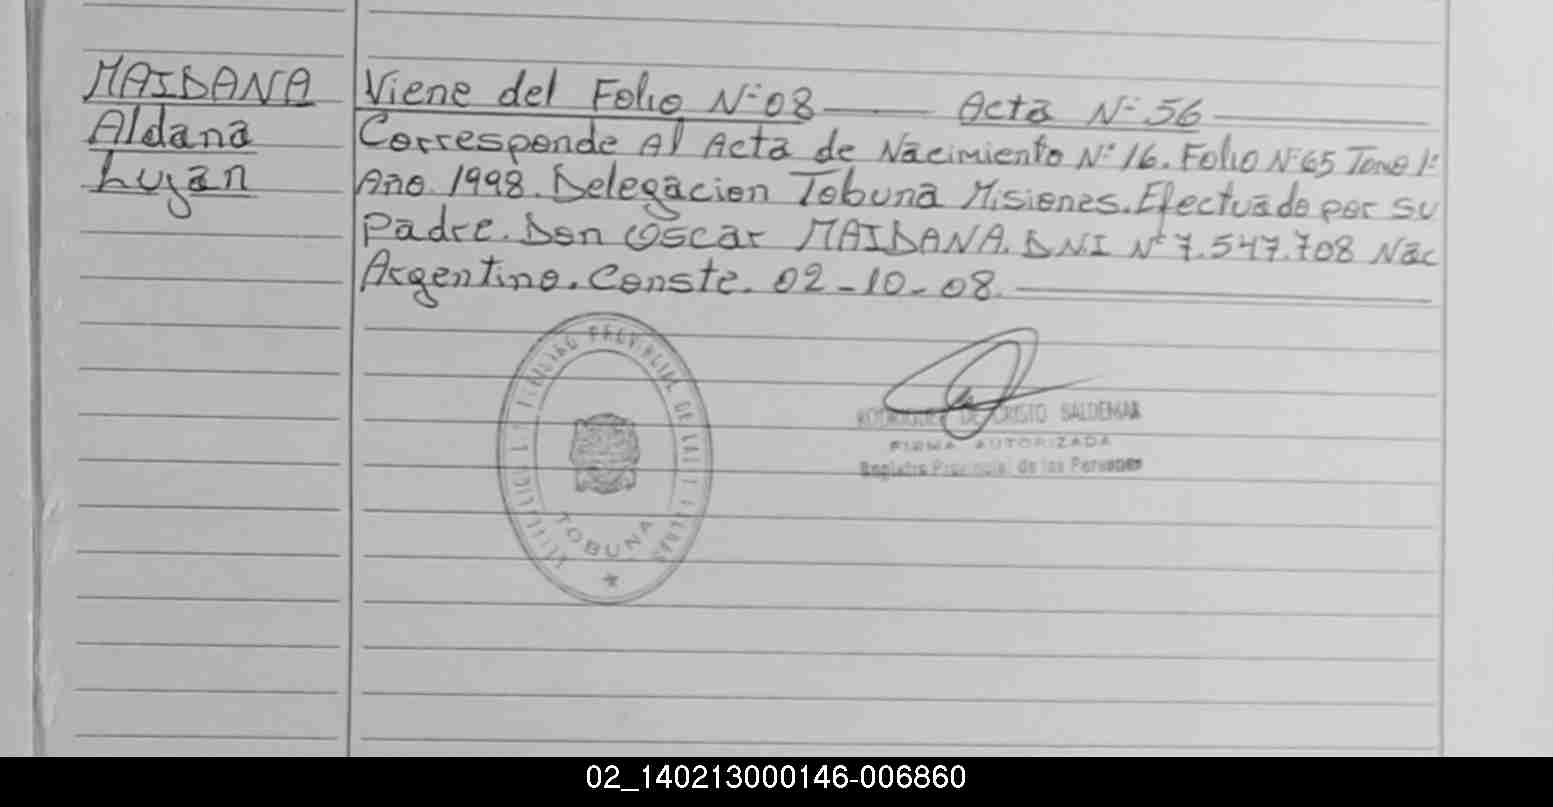 MAIDANA
Aldana
Lujan
Viene del Folio Nº 08 —— Acta Nº 56 ——
Corresponde Al Acta de Nacimiento Nº 16. Folio Nº 65 Tomo 1º
Año 1998. Delegacion Tobuna Misiones. Efectuado por su
Padre. Don Oscar MAIDANA. DNI Nº 7.547.708 Nac
Argentino. Conste. 02-10-08. ——
PROVINCIAL DE LAS
TOBUNA
RODRIGUEZ DE CRISTO SALDEMAR
FIRMA AUTORIZADA
Registro Provincial de las Personas
02_140213000146-006860